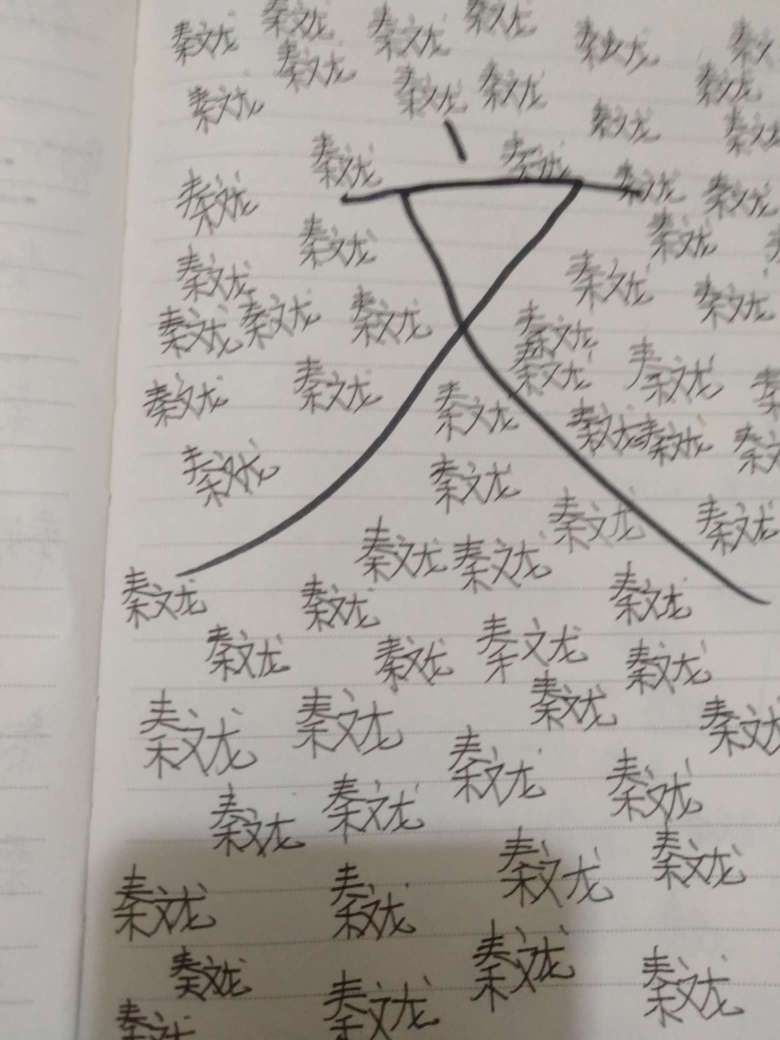 秦文龙 秦文龙 秦文龙 秦文龙 秦文龙
秦文龙 秦文龙 秦文龙 秦文龙
秦文龙 秦文龙 秦文龙 秦文龙
秦文龙 秦文龙 秦文龙 秦文龙
秦文龙 秦文龙 秦文龙
秦文龙 秦文龙 秦文龙
秦文龙 秦文龙 秦文龙 秦文龙
秦文龙 秦文龙 秦文龙
秦文龙 秦文龙 秦文龙 秦文龙 秦文龙
秦文龙 秦文龙 秦文龙 秦文龙
秦文龙 秦文龙
秦文龙 秦文龙 秦文龙
秦文龙 秦文龙 秦文龙 秦文龙
秦文龙 秦文龙 秦文龙 秦文龙
秦文龙 秦文龙 秦文龙
秦文龙 秦文龙 秦文龙 秦文龙
秦文龙 秦文龙 秦文龙
秦文龙 秦文龙 秦文龙
秦文龙 秦文龙 秦文龙
文